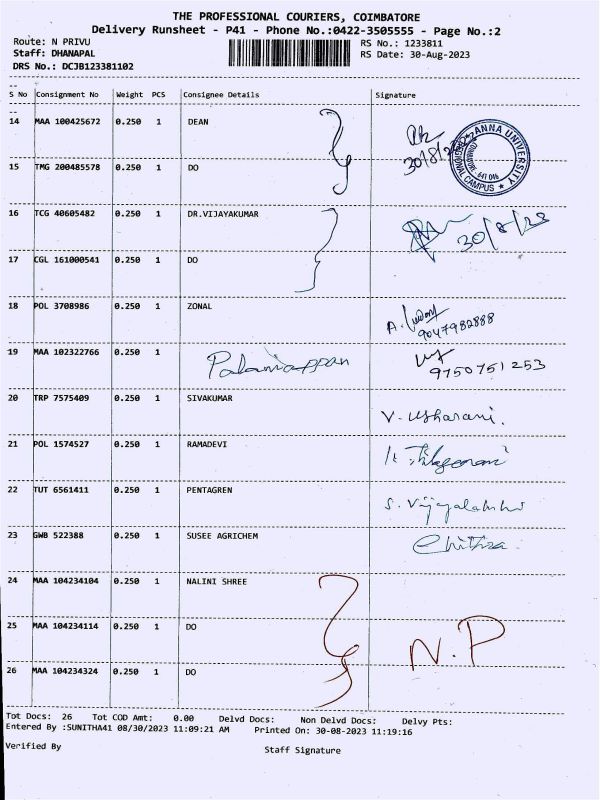 THE PROFESSIONAL COURIERS, COIMBATORE
Delivery Runsheet - P41 - Phone No.:0422-3505555 - Page No.:2
Route: N PRIVU RS No.: 1233811
Staff: DHANAPAL RS Date: 30-Aug-2023
DRS No.: DCJB123381102
S No Consignment No Weight PCS Consignee Details Signature
14 MAA 100425672 0.250 1 DEAN
30/8/23
ANNA UNIVERSITY
REGIONAL CAMPUS
COIMBATORE
641 046
15 TMG 200485578 0.250 1 DO
16 TCG 40605482 0.250 1 DR.VIJAYAKUMAR
30/8/23
17 CGL 161000541 0.250 1 DO
18 POL 3708986 0.250 1 ZONAL
9047982888
19 MAA 102322766 0.250 1 Palaniappan
9750751253
20 TRP 7575409 0.250 1 SIVAKUMAR V. Usharani.
21 POL 1574527 0.250 1 RAMADEVI
22 TUT 6561411 0.250 1 PENTAGREN S. Vijayalakshmi
23 GWB 522388 0.250 1 SUSEE AGRICHEM Chithra.
24 MAA 104234104 0.250 1 NALINI SHREE
25 MAA 104234114 0.250 1 DO N.P
26 MAA 104234324 0.250 1 DO
Tot Docs: 26 Tot COD Amt: 0.00 Delvd Docs: Non Delvd Docs: Delvy Pts:
Entered By :SUNITHA41 08/30/2023 11:09:21 AM Printed On: 30-08-2023 11:19:16
Verified By Staff Signature